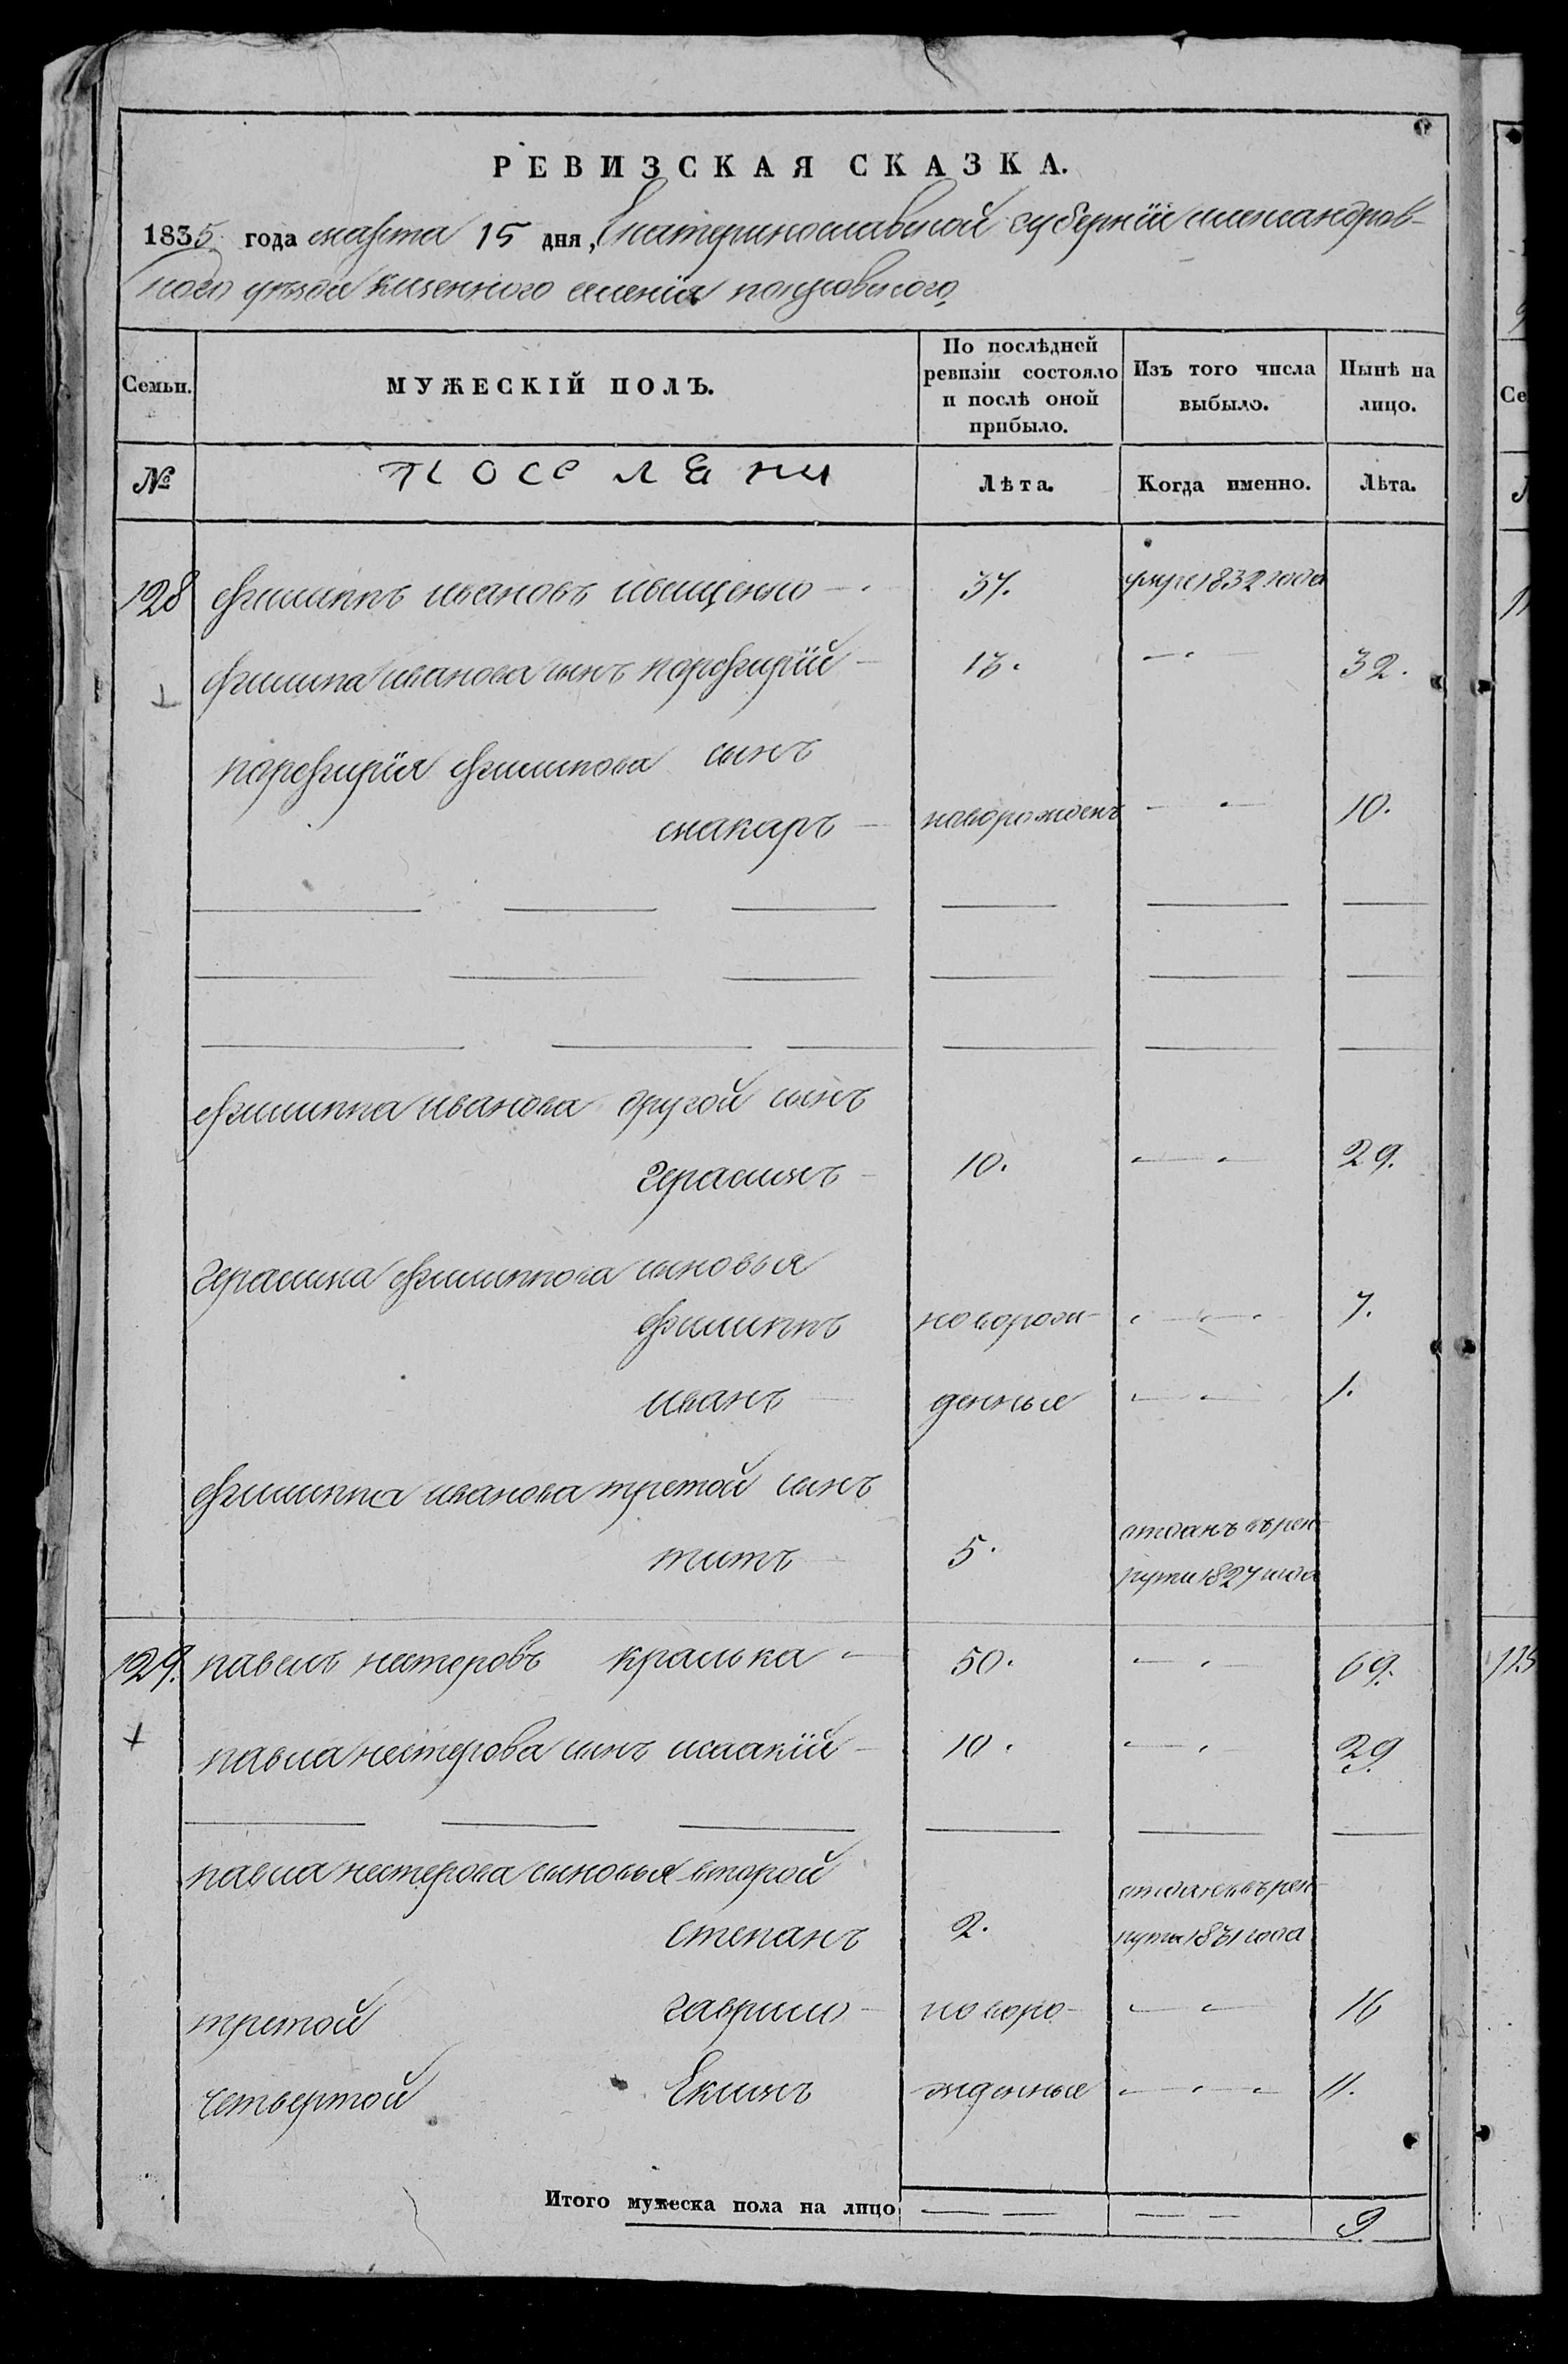 РЕВИЗСКАЯ СКАЗКА.
1835 года марта 15 дня, Екатеринославской губернїи александров-
ского уезда казенного селенїя покровского
Семьи. МУЖЕСКІЙ ПОЛЪ. По послѣдней ревизіи состояло и послѣ оной прибыло. Изъ того числа выбыло. Нынѣ на лицо.
№ поселяни Лѣта. Когда именно. Лѣта.
128 филиппъ ивановъ иващенко 37. умре 1832 года
филипа иванова сынъ порфирїй 13. 32.
порфирїя филипова сынъ
макаръ новорожденъ 10.
филиппа иванова другой сынъ
герасимъ 10. 29.
герасима филиппова сыновья
филиппъ новорож- 7.
иванъ денные 1.
филиппа иванова третой сынъ
титъ 5. отданъ въ рек-
руты 1827 года
129. павелъ нестеровъ кралька 50. 69.
павла нестерова сынъ исаакїй 10. 29
павла нестерова сыновья второй
степанъ 2. отданъ въ рек-
руты 1831 года
третой гаврило новоро- 16
четвертой Екимъ жденные 11.
Итого мужеска пола на лицо 9.
Се